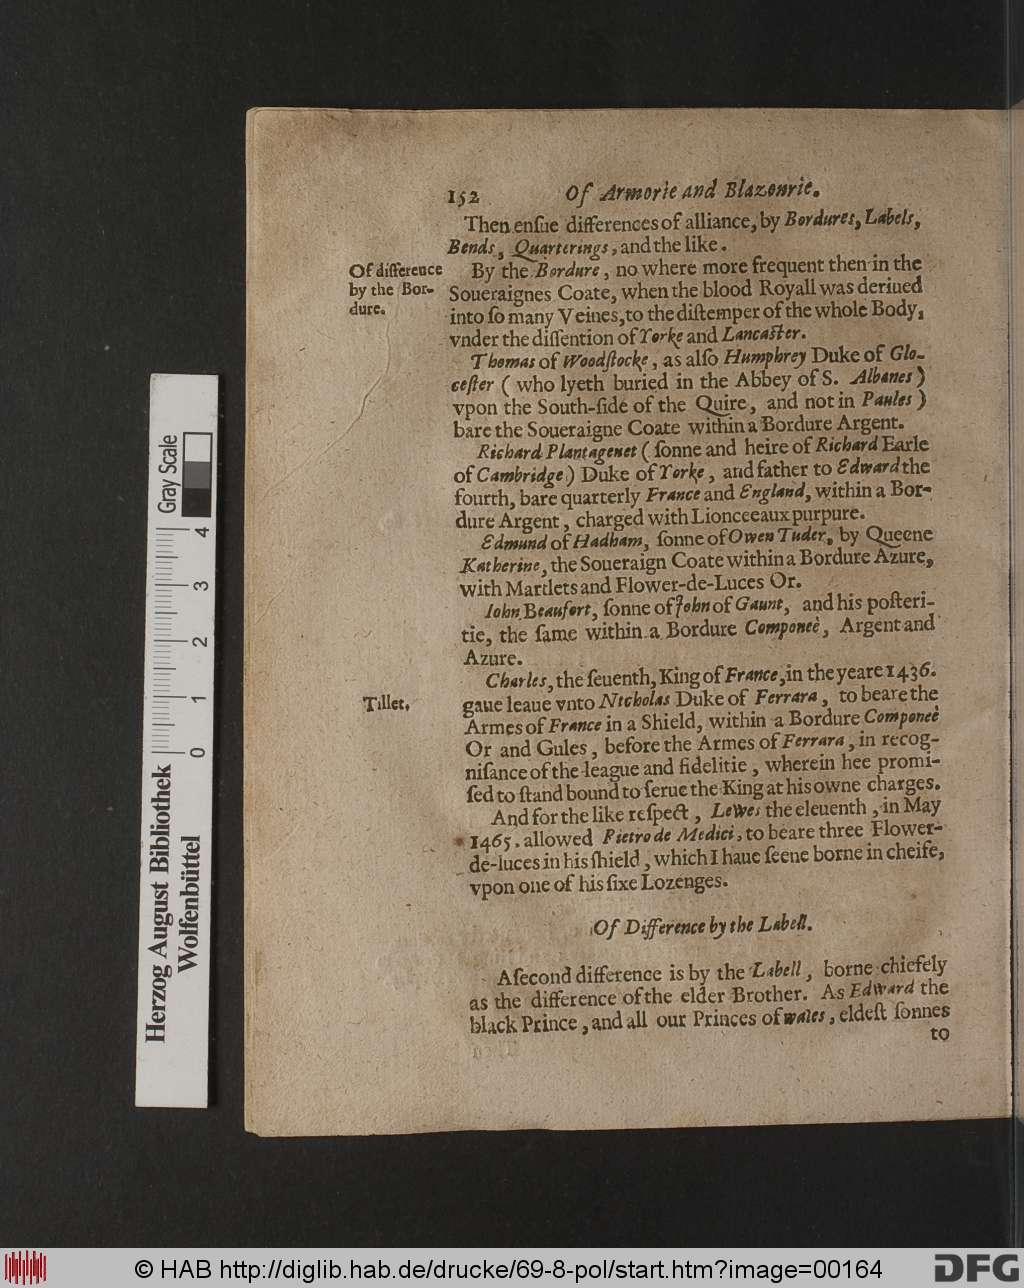 152 Of Armorie and Blazonrie.
Then enſue differences of alliance, by Bordures, Labels,
Bends, Quarterings, and the like.
Of difference
by the Bor-
dure.
By the Bordure, no where more frequent then in the
Soueraignes Coate, when the blood Royall was deriued
into ſo many Veines, to the diſtemper of the whole Body,
vnder the diſſention of Yorke and Lancaſter.
Thomas of Woodſtocke, as alſo Humphrey Duke of Glo-
ceſter ( who lyeth buried in the Abbey of S. Albanes )
vpon the South-ſide of the Quire, and not in Paules )
bare the Soueraigne Coate within a Bordure Argent.
Richard Plantagenet ( ſonne and heire of Richard Earle
of Cambridge ) Duke of Yorke, and father to Edward the
fourth, bare quarterly France and England, within a Bor-
dure Argent, charged with Lionceeaux purpure.
Edmund of Hadham, ſonne of Owen Tuder, by Queene
Katherine, the Soueraign Coate within a Bordure Azure,
with Martlets and Flower-de-Luces Or.
Iohn Beaufort, ſonne of John of Gaunt, and his poſteri-
tie, the ſame within a Bordure Componeè, Argent and
Azure.
Charles, the ſeuenth, King of France, in the yeare 1436.
Tillet.
gaue leaue vnto Nicholas Duke of Ferrara, to beare the
Armes of France in a Shield, within a Bordure Componeè
Or and Gules, before the Armes of Ferrara, in recog-
niſance of the league and fidelitie, wherein hee promi-
ſed to ſtand bound to ſerue the King at his owne charges.
And for the like reſpect, Lewes the eleuenth, in May
1465. allowed Pietro de Medici, to beare three Flower-
de-luces in his ſhield, which I haue ſeene borne in cheife,
vpon one of his ſixe Lozenges.
Of Difference by the Labell.
A ſecond difference is by the Labell, borne chiefely
as the difference of the elder Brother. As Edward the
black Prince, and all our Princes of wales, eldeſt ſonnes
to
Herzog August Bibliothek
Wolfenbüttel
Gray Scale
0 1 2 3 4
© HAB http://diglib.hab.de/drucke/69-8-pol/start.htm?image=00164
DFG